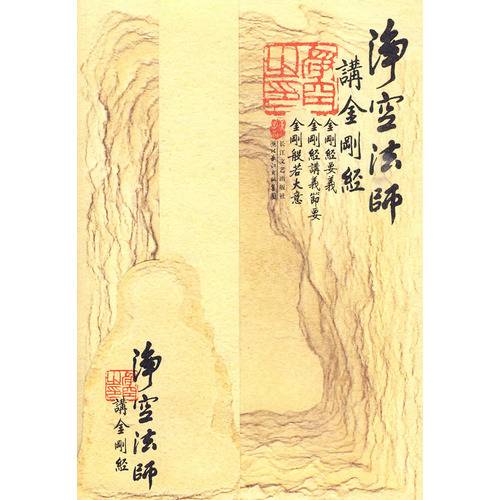 淨空法師
講金剛經
金剛經要義
金剛經講義節要
金剛般若大意
長江文艺出版社
淨空法師
講金剛經